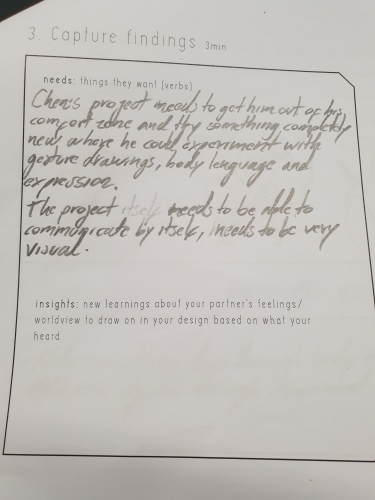 3. Capture findings 3min
needs: things they want (verbs)
Chen's project needs to get him out of his
comfort zone and try something completly
new, where he could experiment with
gesture drawings, body lenguage and
expression.
The project itself needs to be able to
communicate by itself, needs to be very
visual.
insights: new learnings about your partner's feelings/
worldview to draw on in your design based on what your
heard